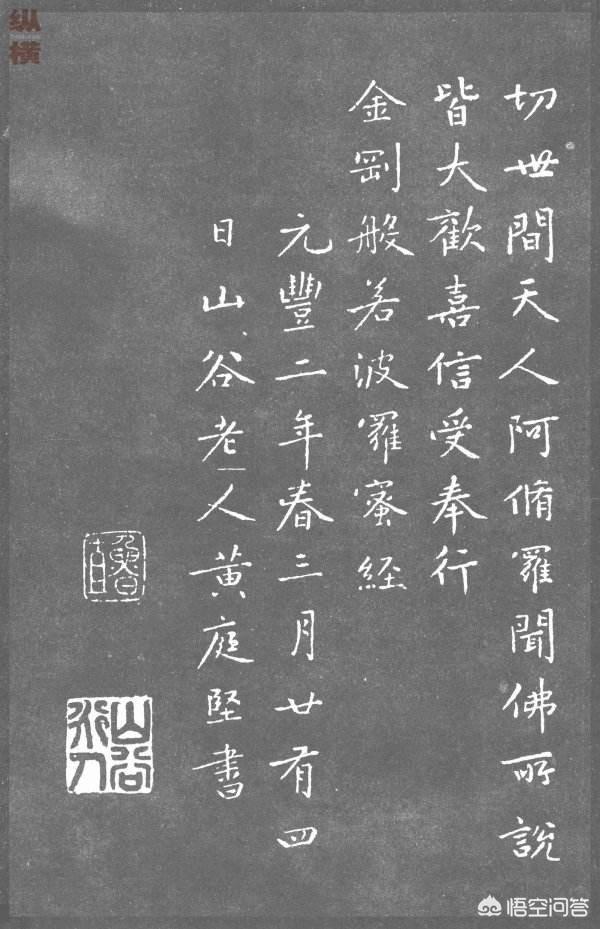 切世間天人阿脩羅聞佛所說
皆大歡喜信受奉行
金剛般若波羅蜜経
元豐二年春三月廿有四
日山谷老人黄庭堅書
山谷
纵横
悟空问答